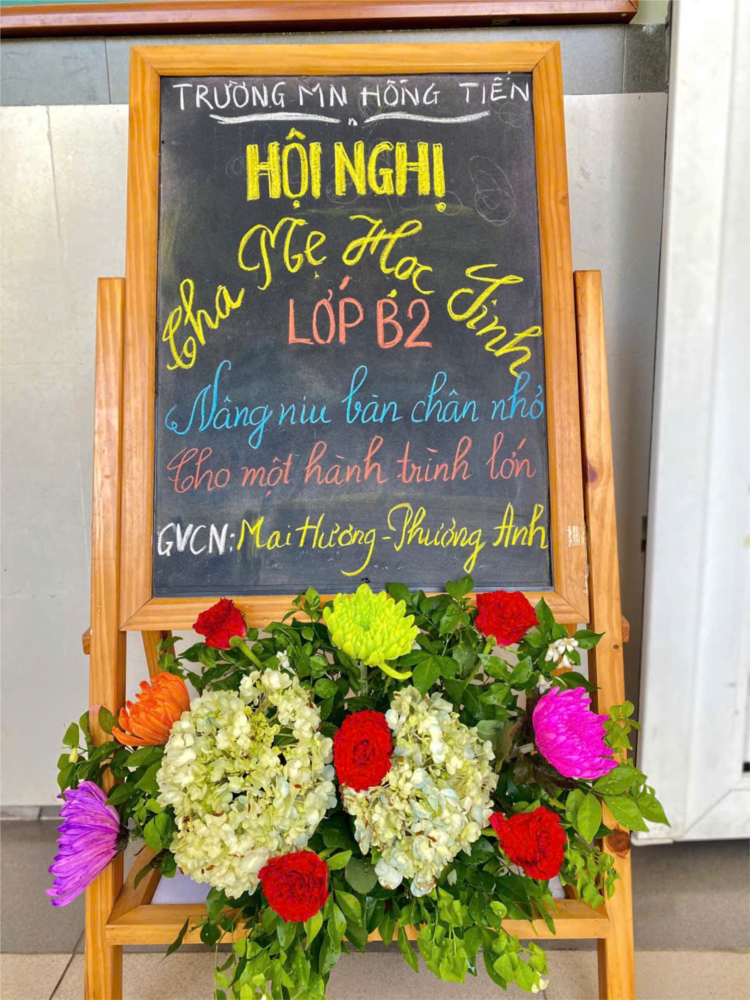 TRƯỜNG MN HỒNG TIẾN
HỘI NGHỊ
Cha Mẹ Học Sinh
LỚP B2
Nâng niu bàn chân nhỏ
Cho một hành trình lớn
GVCN: Mai Hương - Phương Anh